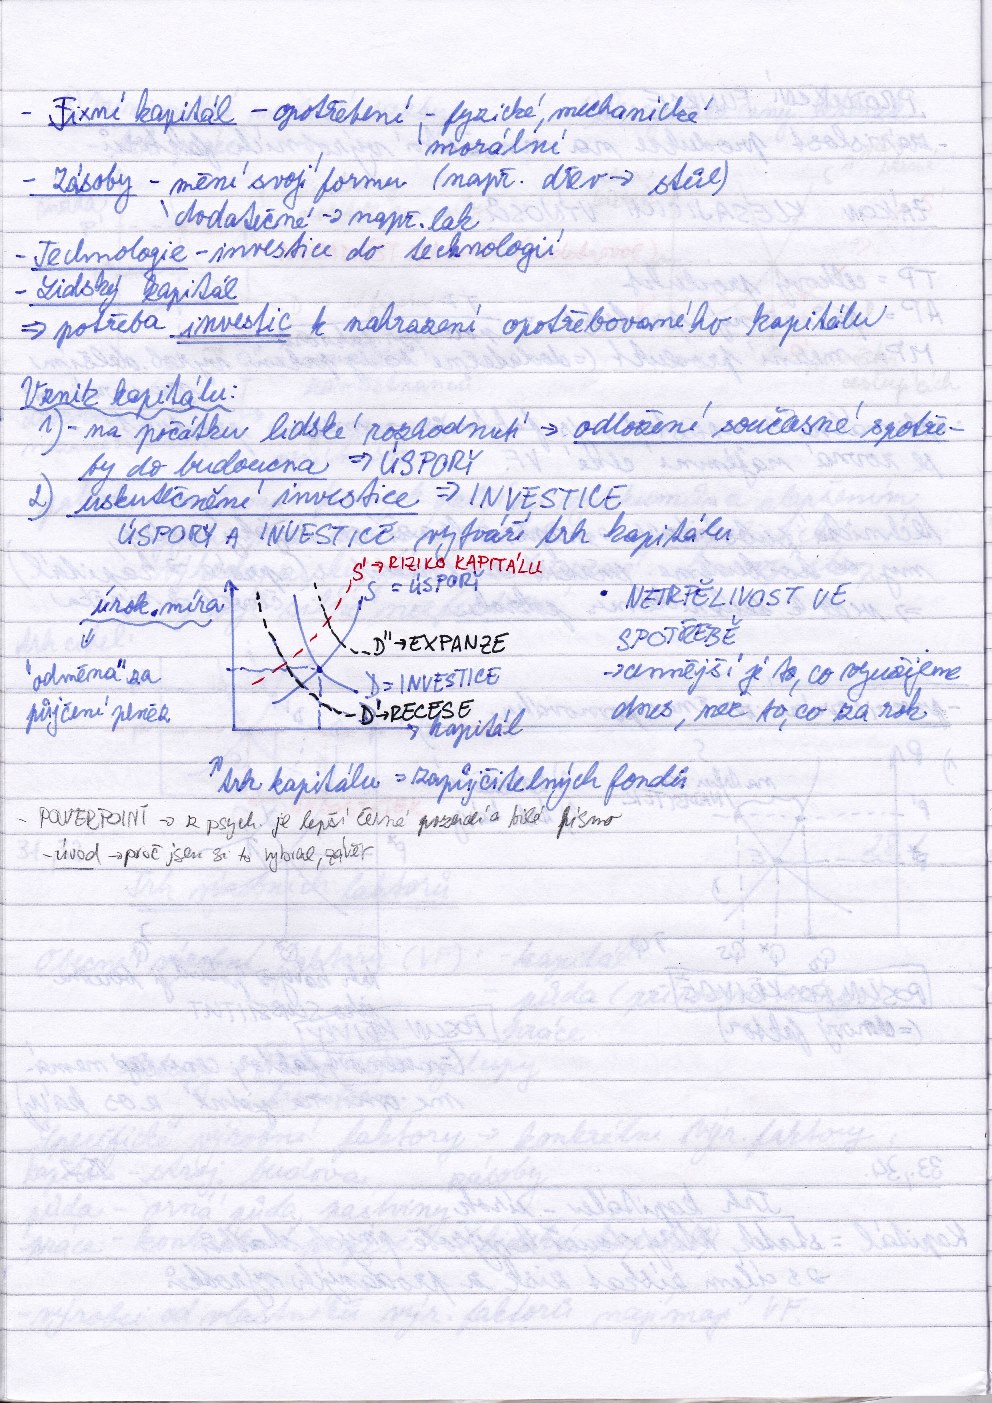 - Fixní kapitál - opotřebení - fyzické, mechanické
morální
- Zásoby - mění svojí formu (např. dřev → stůl)
dodatečné → např. lak
- Technologie - investice do technologií
- Lidský kapitál
⇒ potřeba investic k nahrazení opotřebovaného kapitálu
Vznik kapitálu:
1) - na počátku lidské rozhodnutí → odložení současné spotře-
by do budoucna ⇒ ÚSPORY
2) uskutečnění investice ⇒ INVESTICE
ÚSPORY A INVESTICE vytváří trh kapitálu
S' → RIZIKO KAPITÁLU
S = ÚSPORY
úrok. míra
D'' → EXPANZE
"odměna" za
půjčení peněz
D = INVESTICE
D' → RECESE
→ kapitál
• NETRPĚLIVOST VE
SPOTŘEBĚ
→ cennější je to, co využijeme
dnes, než to, co za rok
trh kapitálu = zapůjčitelných fondů
- POWERPOINT → z psych. je lepší černé pozadí a bílé písmo
- úvod → proč jsem si to vybral, závěr